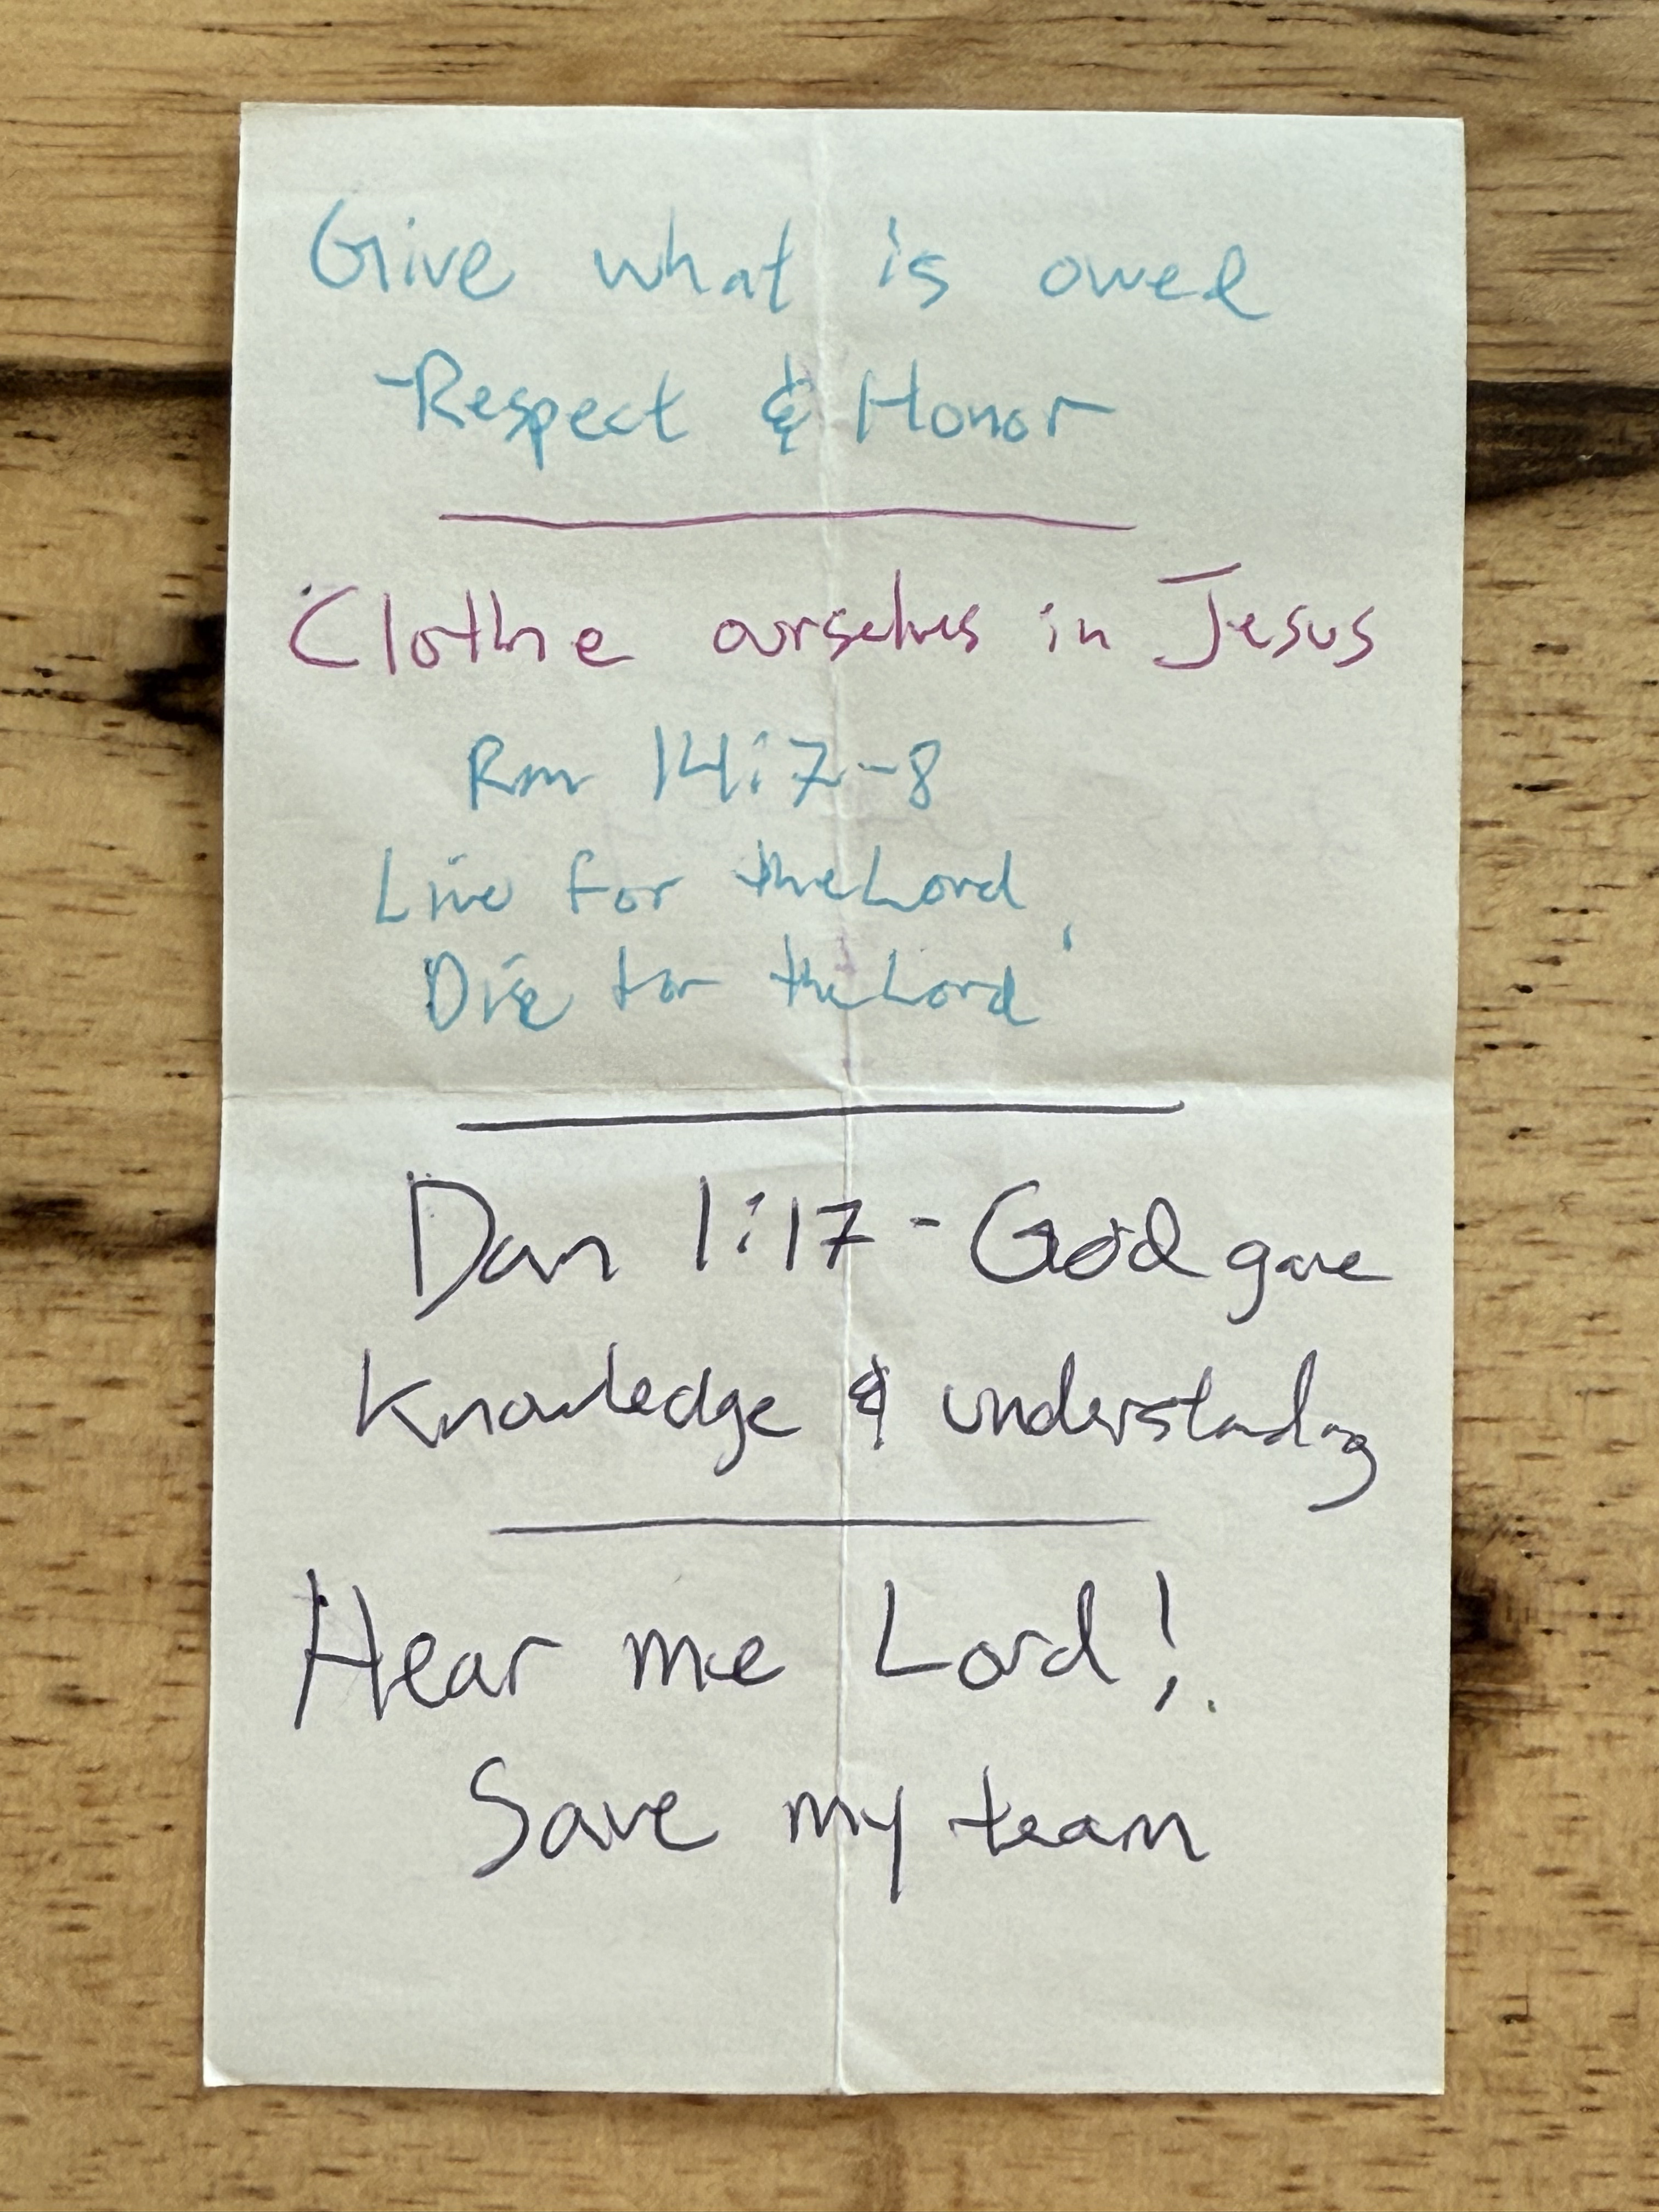 Give what is owed
-Respect & Honor
Clothe ourselves in Jesus
Rm 14:7-8
Live for the Lord,
Die for the Lord
Dan 1:17 - God gave
knowledge & understanding
Hear me Lord!
Save my team